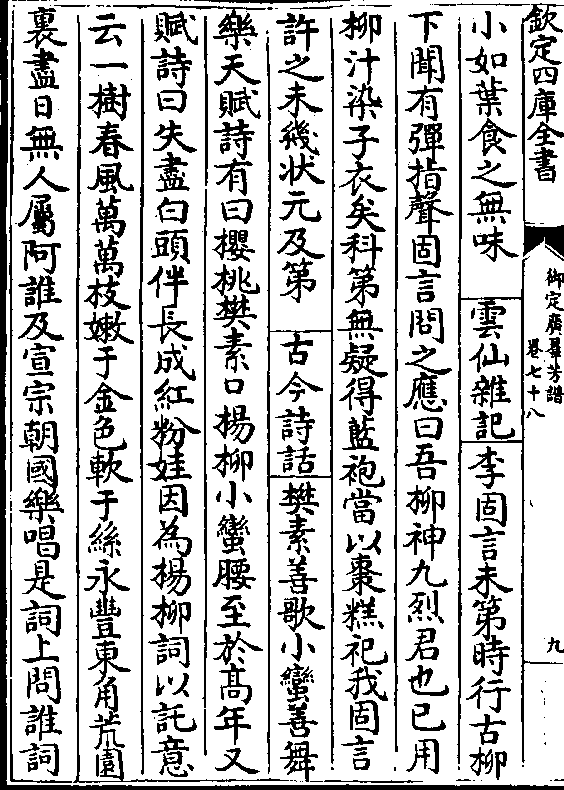 欽定四庫全書
御定廣羣芳譜
卷七十八
九
小如葉食之無味 雲仙雜記 李固言未第時行古柳
下聞有彈指聲固言問之應曰吾柳神九烈君也已用
柳汁染子衣矣科第無疑得藍袍當以棗糕祀我固言
許之未幾状元及第 古今詩話 樊素善歌小蠻善舞
樂天賦詩有曰櫻桃樊素口楊柳小蠻腰至於髙年又
賦詩曰失盡白頭伴長成紅粉娃因為楊柳詞以託意
云一樹春風萬萬枝嫩于金色軟于絲永豐東角荒園
裏盡日無人屬阿誰及宣宗朝國樂唱是詞上問誰詞